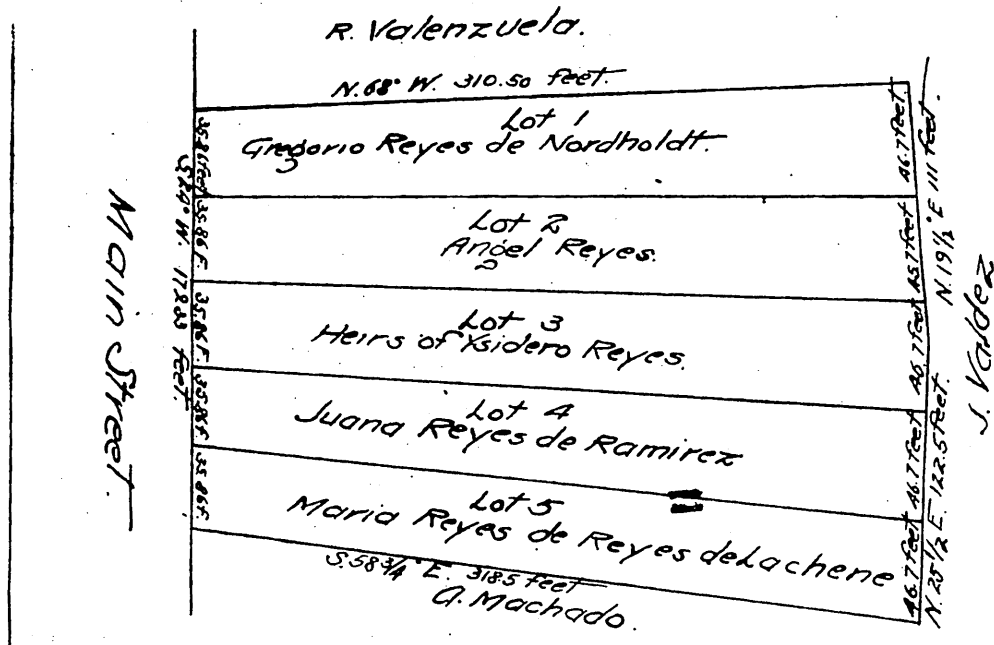 R. Valenzuela.
N. 68° W. 310.50 feet.
Lot 1
Gregorio Reyes de Nordholdt.
Lot 2
Angel Reyes.
Lot 3
Heirs of Ysidero Reyes.
Lot 4
Juana Reyes de Ramirez
Lot 5
Maria Reyes de Reyes de Lachene
S. 58 3/4° E. 318.5 feet
A. Machado.
Main Street.
35.86 feet
35.86 F.
35.86 F.
35.86 F.
35.86 F.
W. 178.83 feet.
46.7 feet
45.7 feet
46.7 feet
46.7 feet
46.7 feet
N. 19 1/2° E 111 feet.
N. 25 1/2 E. 122.5 feet.
J. Valdez